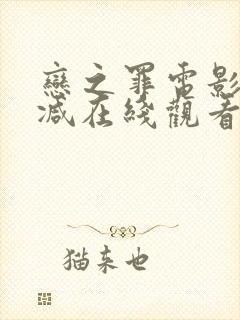 戀之罪電影
減在綫觀看
猫来也